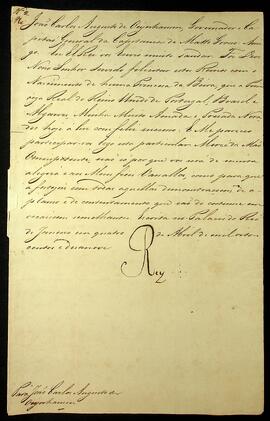 João Carlos Augusto de Oeynhausen, Governador e Ca-
pitão General da Capitania de Matto Grosso. Ami-
go. Eu ElRei vos envio muito saudar. Por Deos
Nosso Senhor servido felicitar este Reino com o
Nascimento de huma Princeza da Beira, que a Prin-
ceza Real do Reino Unido de Portugal, Brasil e
Algarves, Minha Muito Amada e Prezada Nora
deo hoje á luz com feliz successo: E Me pareceo
participar-vos logo esta particular Mercê da Mão
Omnipotente, não só por que vos será de muita
alegria e aos Meus fieis Vassallos, como para que
a façaes com todas aquellas demonstraçoens de a-
plauso e de contentamento que são do costume em
occasioens semelhantes. Escrita no Palacio do Rio
de Janeiro em quatro de Abril de mil oito
centos e dezanove.
Rey
Para João Carlos Augusto de
Oeynhausen